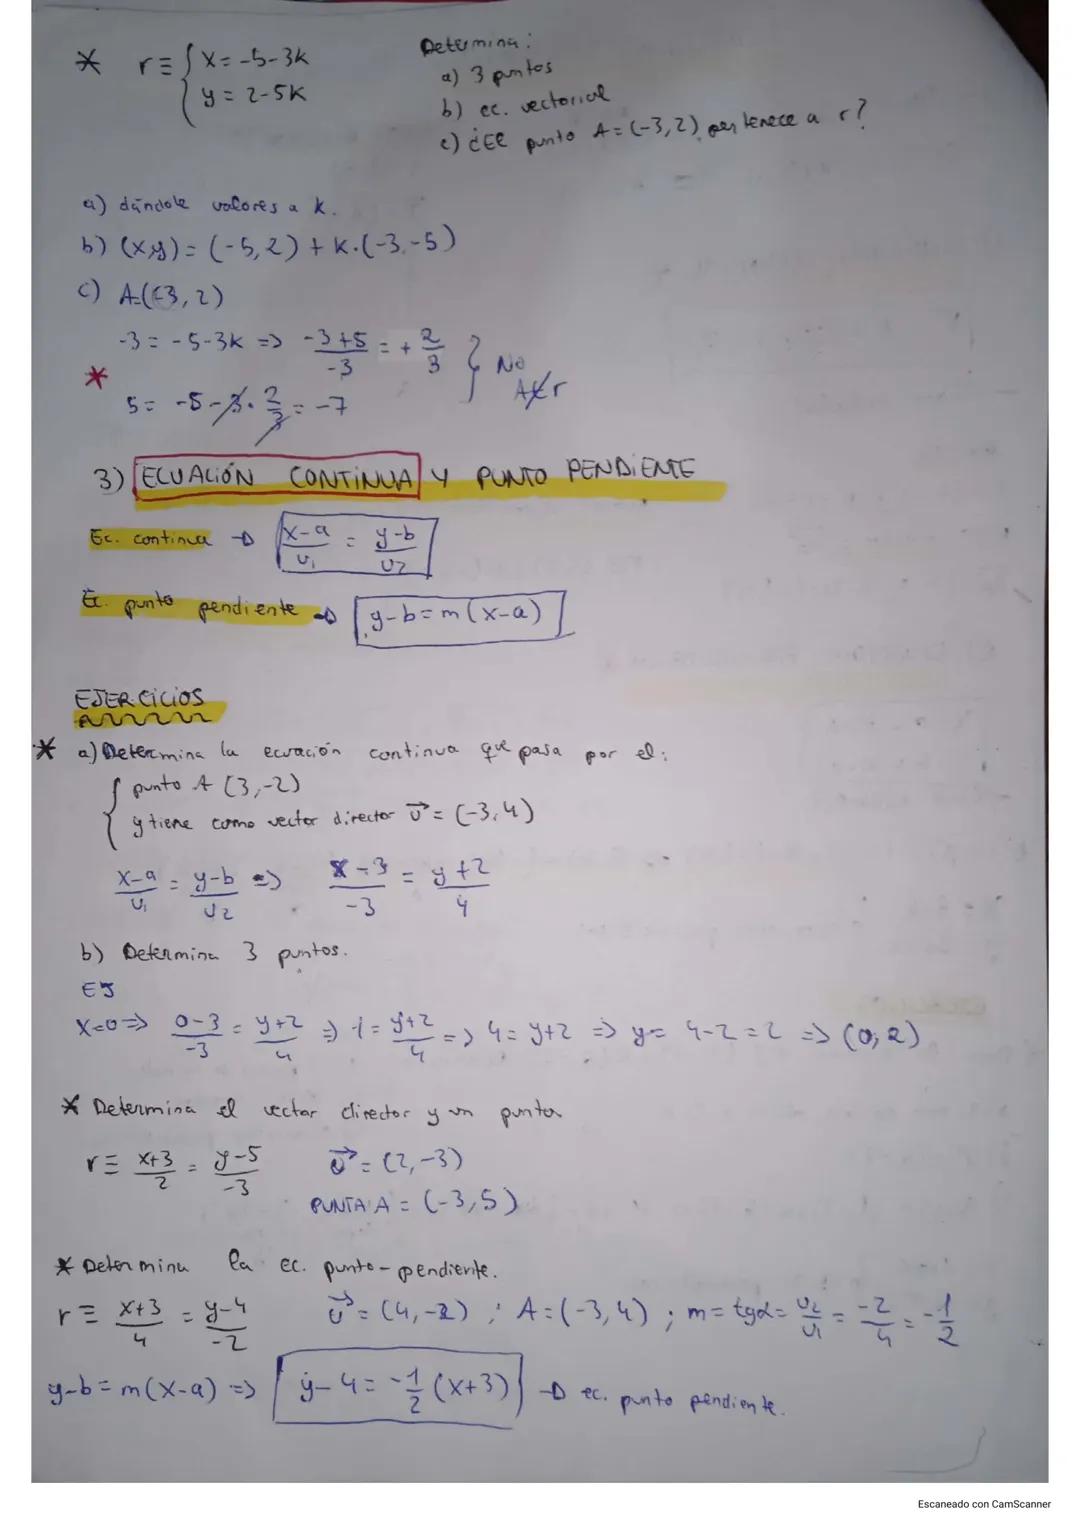 * r≡ { x = -5-3k
y = 2-5k
Determina:
a) 3 puntos
b) ec. vectorial
c) ¿El punto A = (-3,2) pertenece a r?
a) dándole valores a k.
b) (x,y) = (-5,2) + k·(-3,-5)
c) A=(-3,2)
-3 = -5-3k => -3+5/-3 = + 2/3
* 5 = -5-3·2/3 = -7
} No A∉r
3) ECUACIÓN CONTINUA Y PUNTO PENDIENTE
Ec. continua → x-a/v₁ = y-b/v₂
Ec. punto pendiente → y-b = m(x-a)
EJERCICIOS
* a) Determina la ecuación continua que pasa por el:
{ punto A (3,-2)
y tiene como vector director v⃗ = (-3,4)
x-a/v₁ = y-b/v₂ => x-3/-3 = y+2/4
b) Determina 3 puntos.
EJ
x=0 => 0-3/-3 = y+2/4 => 1 = y+2/4 => 4 = y+2 => y = 4-2 = 2 => (0,2)
* Determina el vector director y un punto
r≡ x+3/2 = y-5/-3 v⃗ = (2,-3)
PUNTA A = (-3,5)
* Determina la ec. punto-pendiente.
r≡ x+3/4 = y-4/-2 v⃗ = (4,-2) ; A = (-3,4) ; m = tgα = v₂/v₁ = -2/4 = -1/2
y-b = m(x-a) => y-4 = -1/2 (x+3) → ec. punto pendiente.
Escaneado con CamScanner